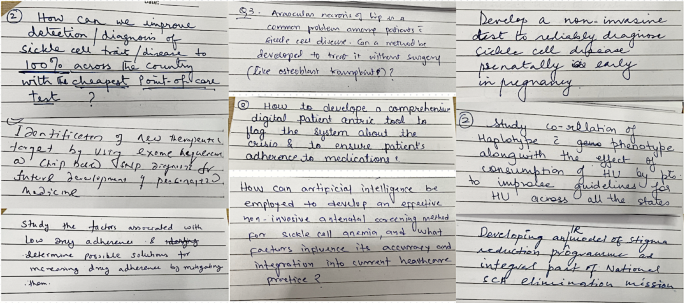 ② How can we improve
detection/diagnosis of
sickle cell trait/disease to
100% across the country
with the cheapest point-of-care
test ?
Identification of new therapeutic
target by using exome sequence
a chip based SNP diagnosis for
future development of
medicine
Study the factors associated with
Low drug adherence &
determine possible solutions for
increasing drug adherence by mitigating
them.
Q3. Avascular necrosis of hip is a
common problem among patients c̄
sickle cell disease. Can a method be
developed to treat it without surgery
(Like osteoblast transplant?) ?
How to develope a comprehensive
digital patient antric tool to
flag the system about the
crisis & to ensure patient's
adherence to medications.
How can artificial intelligence be
employed to develop an effective
non-invasive antenatal screening method
for sickle cell anemia, and what
factors influence its accuracy and
integration into current healthcare
practice ?
Develop a non-invasive
test to reliably diagnose
Sickle cell disease
prenatally early
in pregnancy
② Study co-rellation of
Haplotype c̄ geno phenotype
along with the effect of
consumption of HU by pts.
to improve guidelines for
HU across all the states
Developing an R model of stigma
reduction programme as
integral part of National
SCA elimination mission.